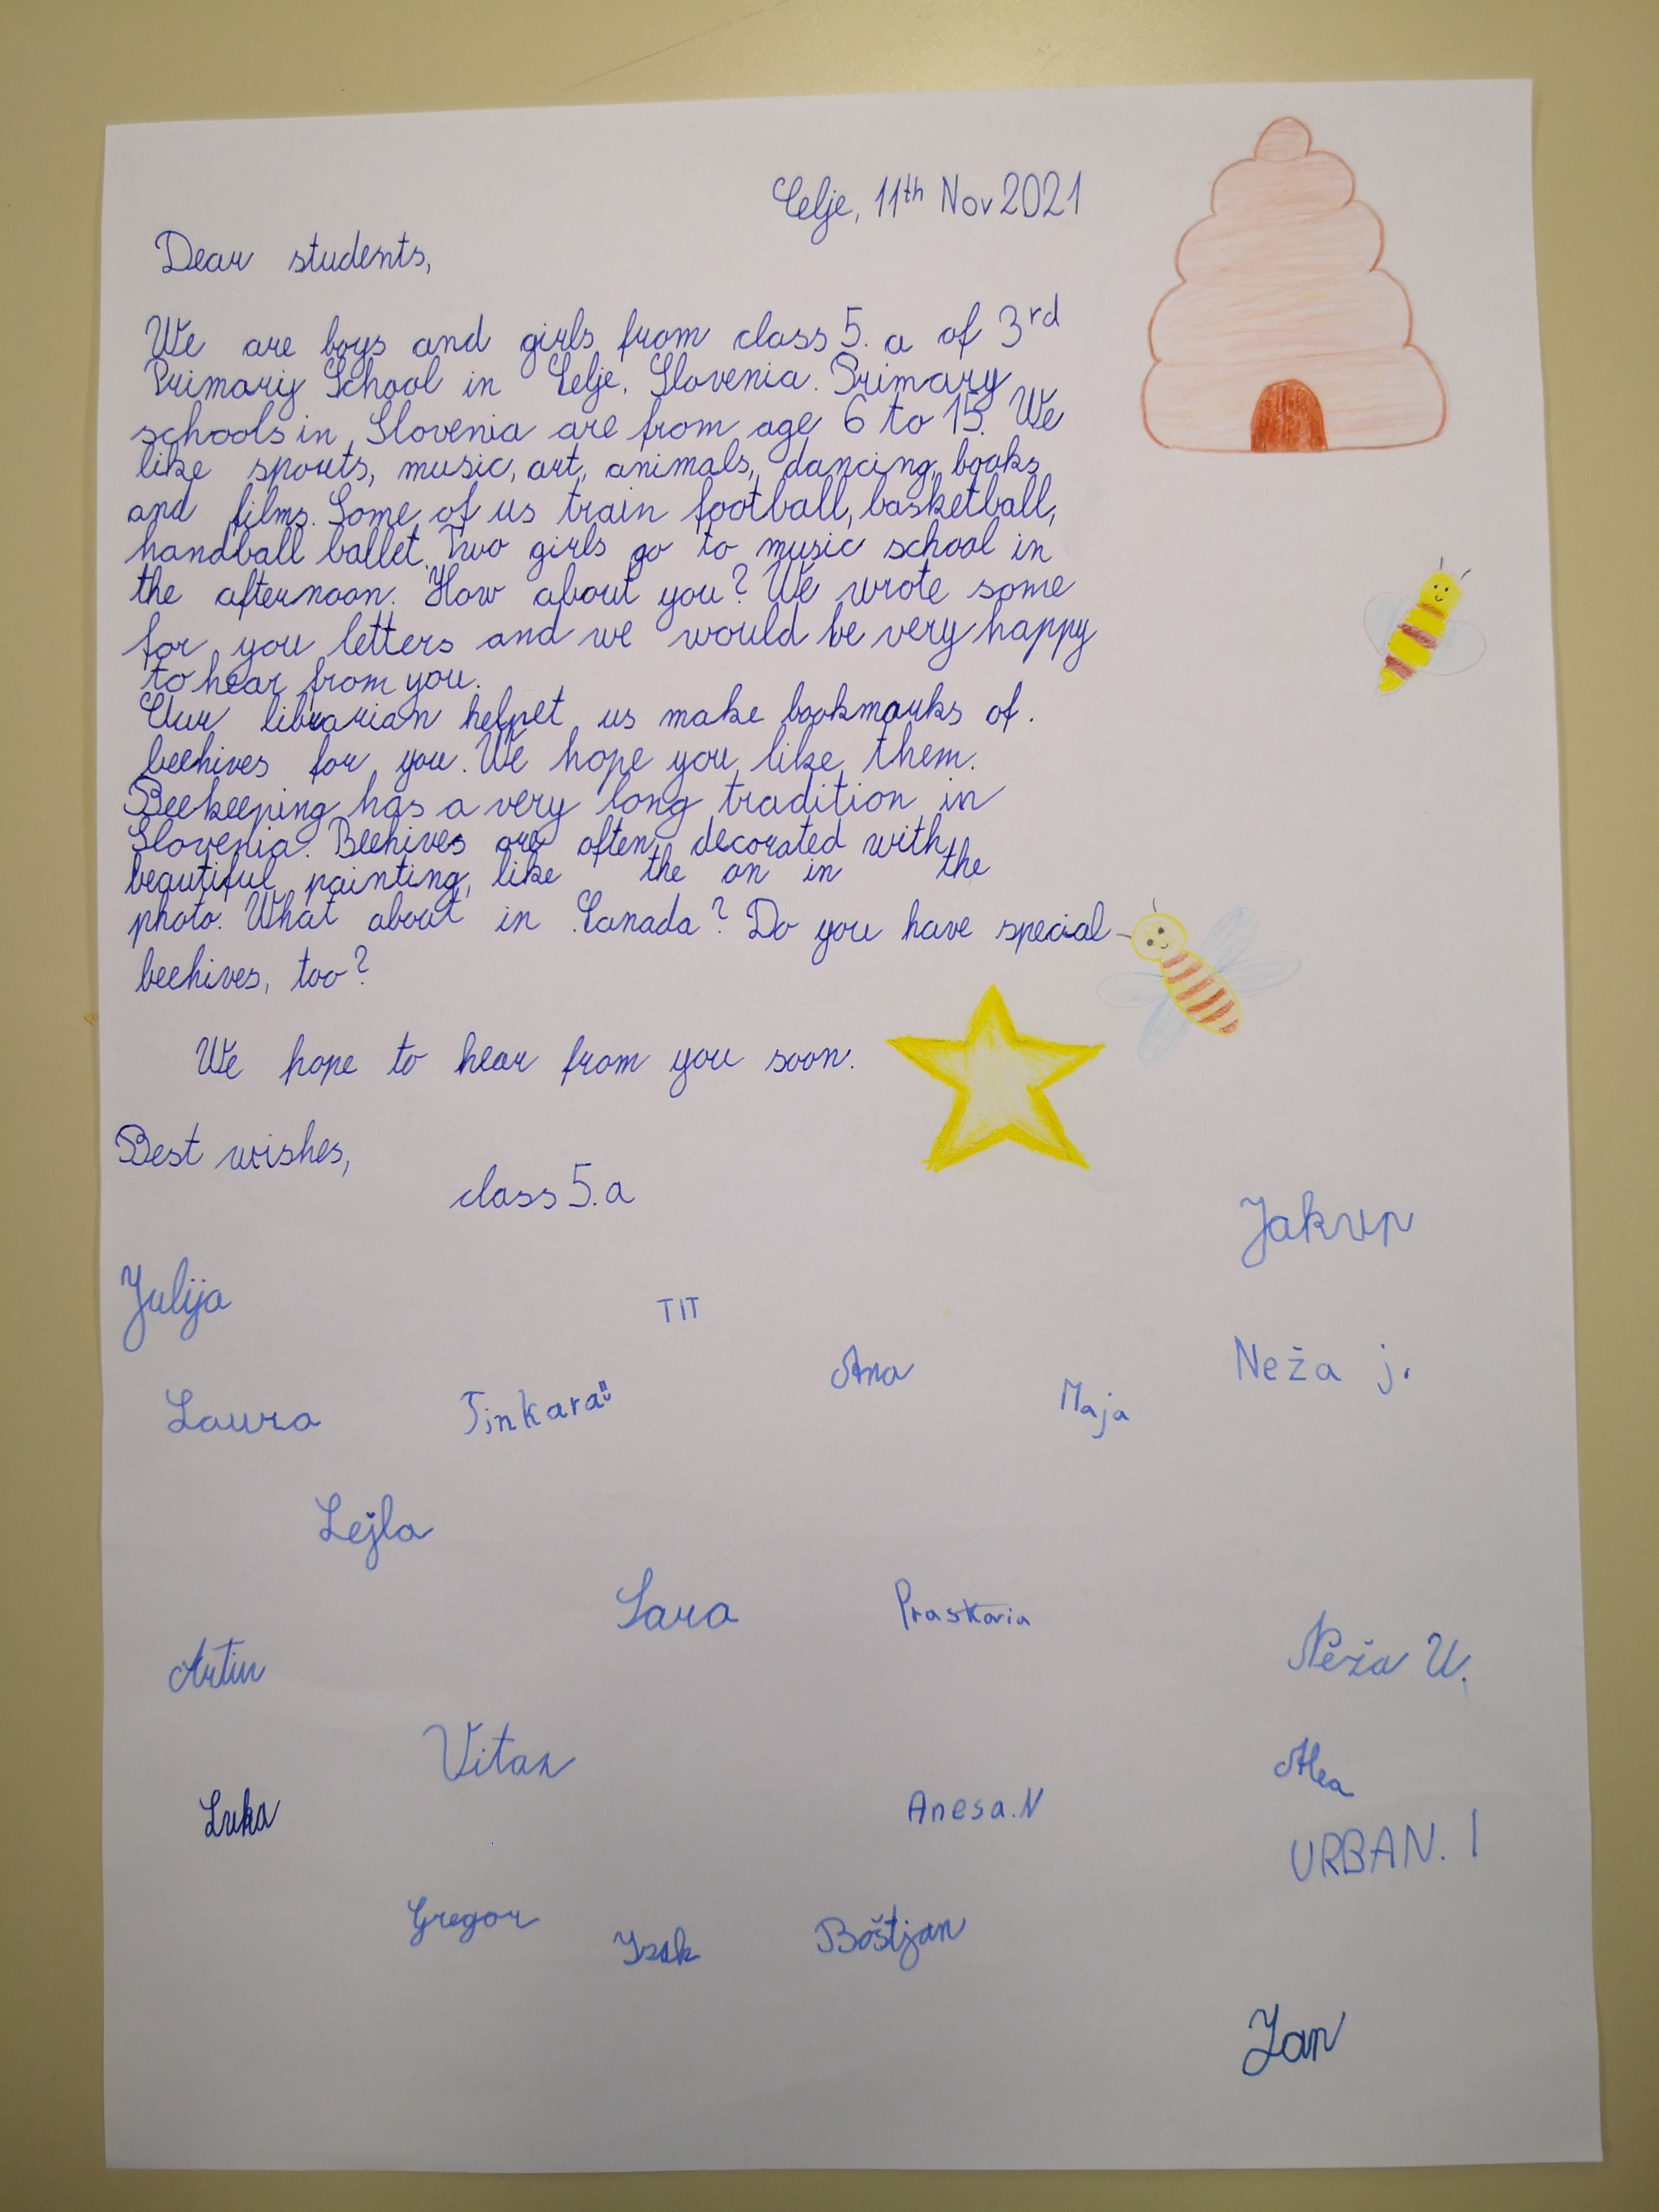 Celje, 11th Nov 2021
Dear students,
We are boys and girls from class 5. a of 3rd
Primary School in Celje, Slovenia. Primary
schools in Slovenia are from age 6 to 15. We
like sports, music, art, animals, dancing, books
and films. Some of us train football, basketball,
handball ballet. Two girls go to music school in
the afternoon. How about you? We wrote some
for you letters and we would be very happy
to hear from you.
Our librarian helpet us make bookmarks of.
beehives for you. We hope you like them.
Beekeeping has a very long tradition in
Slovenia. Beehives are often decorated with
beautiful painting, like the on in the
photo. What about in Canada? Do you have special
beehives, too?
We hope to hear from you soon.
Best wishes,
class 5.a
Jakup
Julija
TIT
Ana
Neža j.
Laura
Tinkara
Maja
Lejla
Sara
Praskovia
Neža U.
Artin
Vitan
Alea
Luka
Anesa. N
URBAN. I
Gregor
Isak
Boštjan
Jan